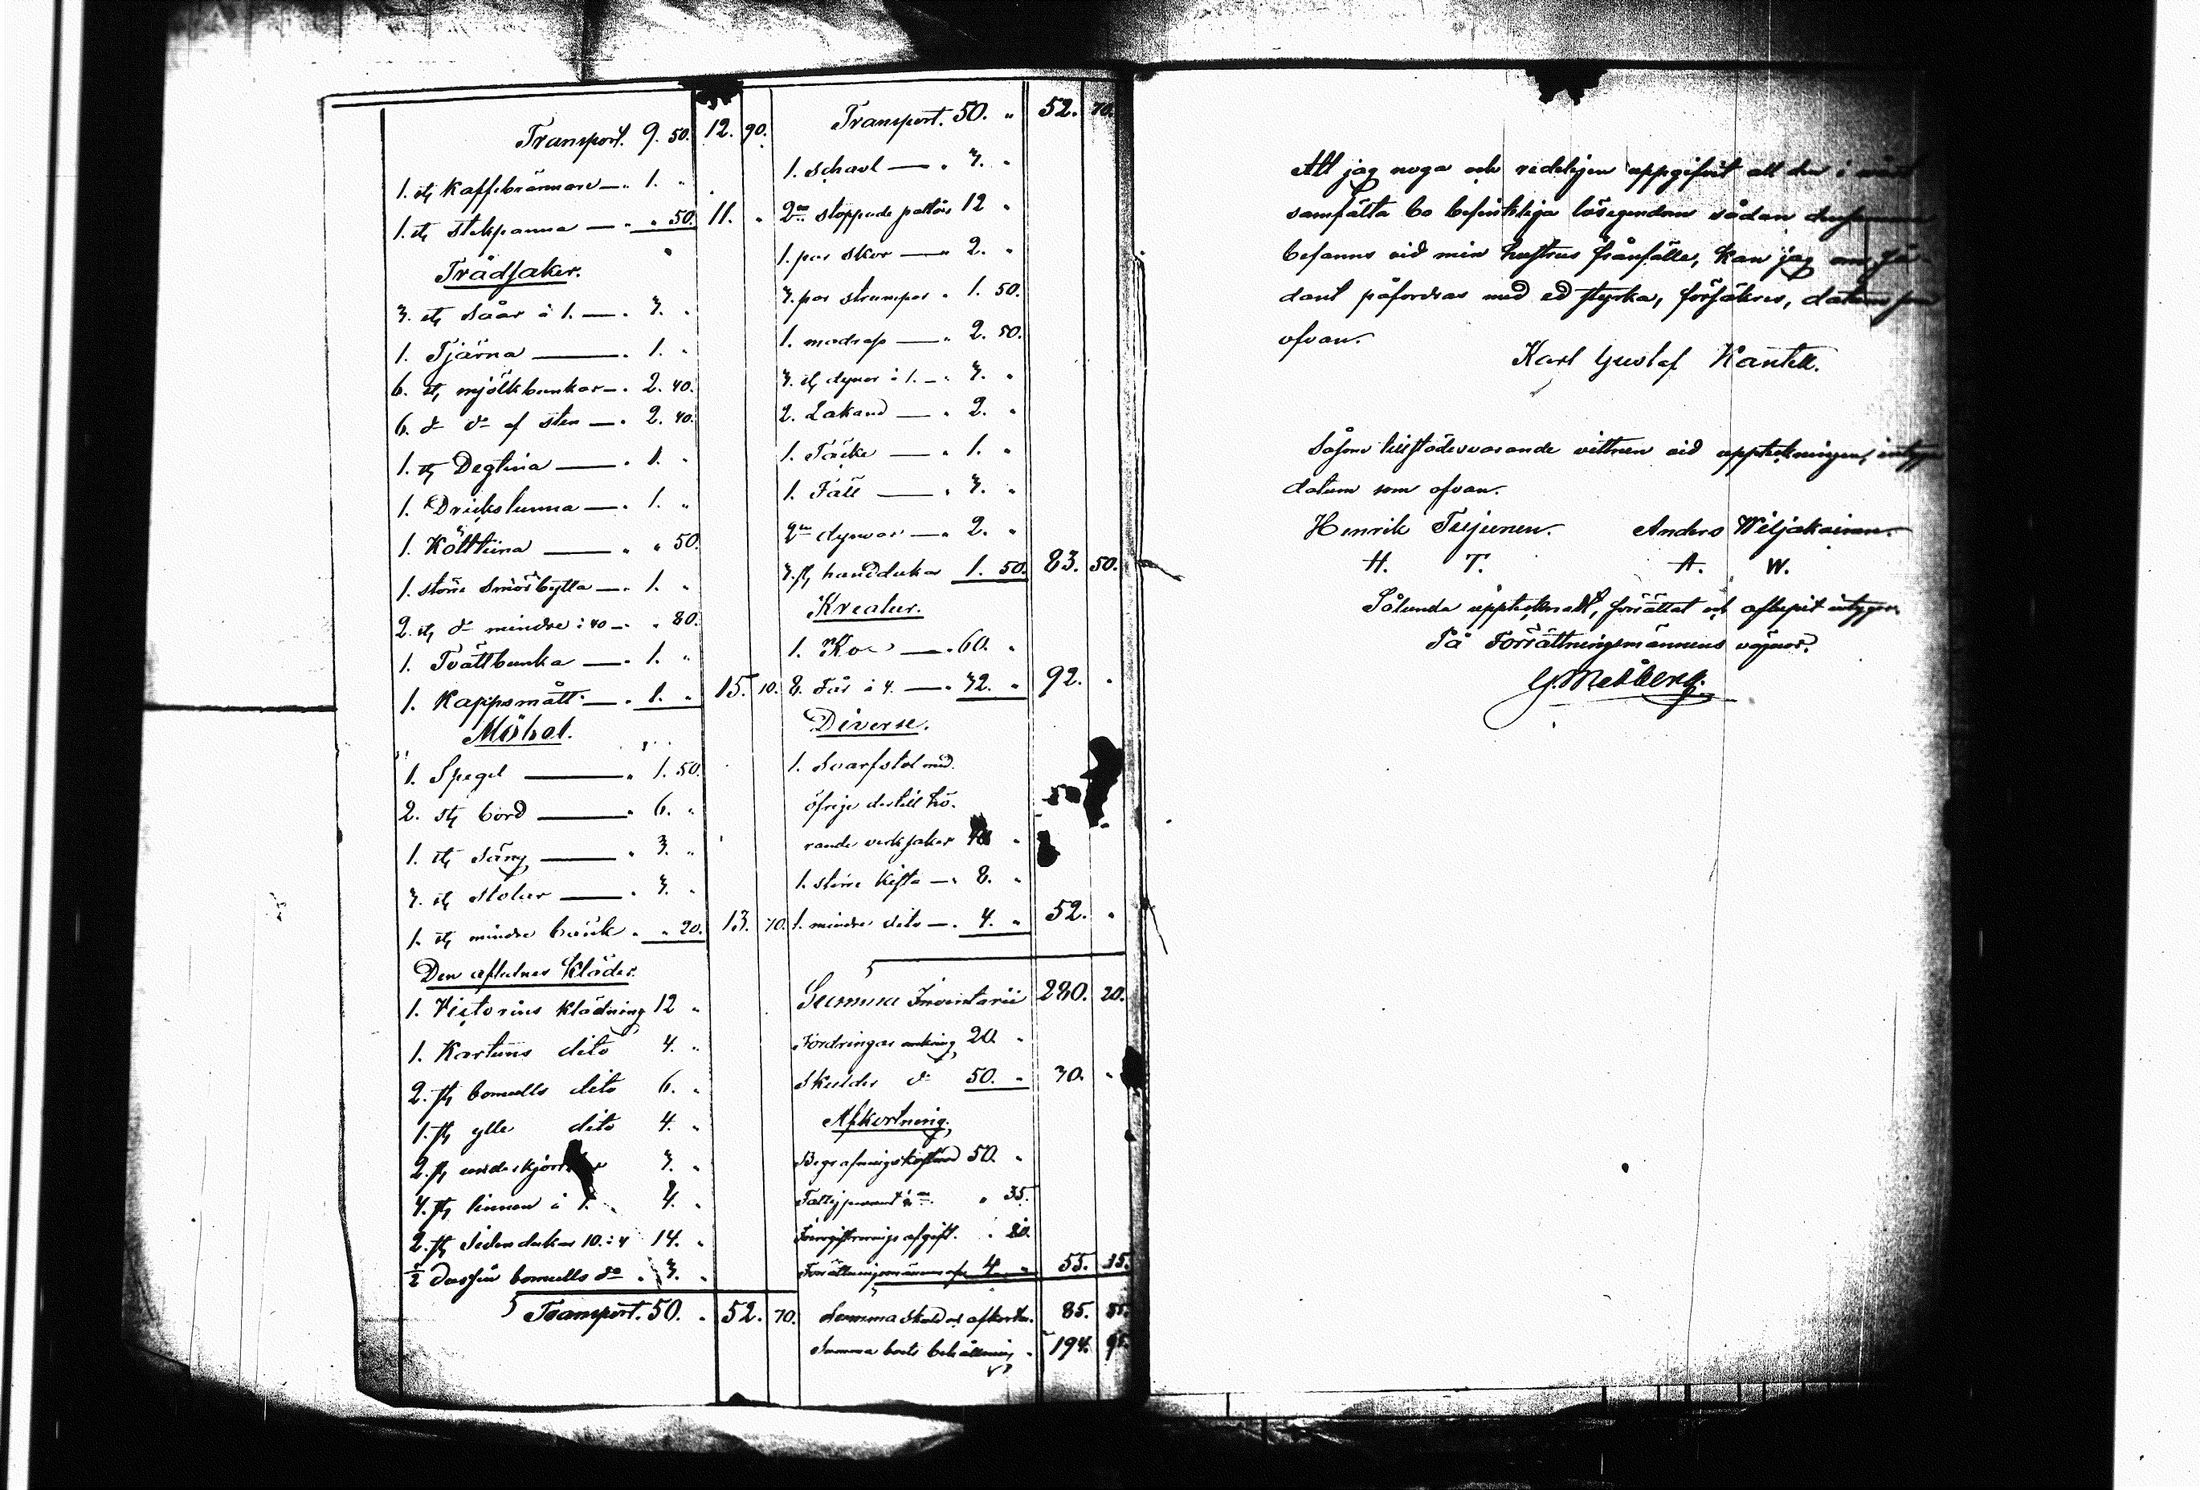 Transport. 9. 50. 12. 90.
1. st Kaffebrännare — „ 1. „
1. st stekpanna — „ „ 50. 11. „
Trädsaker.
3. st Såar à 1. — „ 3. „
1. Tjärna — „ 1. „
6. st mjölkbunkar — „ 2. 40.
6. d:o d:o af sten — „ 2. 40.
1. st Degtina — „ 1. „
1. Drickstunna — „ 1. „
1. Kötttiina — „ „ 50.
1. större Smörbytta — „ 1. „
2. st d:o mindre à 40 — „ „ 80.
1. Tvättbunka — „ 1. „
1. Kappsmått — „ 1. „ 15. 10.
Möbel.
1. Spegel — „ 1. 50.
2. st bord — „ 6. „
1. st Säng — „ 3. „
3. st stolar — „ 3. „
1. st mindre bänk „ „ 20. 13. 70.
Den aflidnes Kläder.
1. Victorins klädning 12 „
1. Kartuns dito 4. „
2. st bomulls dito 6. „
1. st ylle dito 4. „
2. st 3. „
4. st linnen à 1. 4. „
2. st Siden dukar 10. à 4 14. „
½ Dussin bomulls d:o „ 3. „
Transport. 50. „ 52. 70.
Transport. 50. „ 52. 70.
1. schavl — „ 3. „
2:ne stoppade 12 „
1. par skor — „ 2. „
3. par strumpor „ 1. 50.
1. madrass — „ 2. 50.
3. st dynor à 1. — „ 3. „
2. Lakand — „ 2. „
1. Täcke — „ 1. „
1. Fäll — „ 3. „
2:ne dynvar — „ 2. „
3. st handdukar 1. 50. 83. 50.
Kreatur.
1. Ko — „ 60. „
8. Får à 4. — „ 32. „ 92. „
Diverse.
1. Svarfstol med
öfriga dertill hö-
rande verksaker „
1. större Kista — „ 8. „
1. mindre dito — „ 4. „ 52. „
Summa Inventarii 280. 20.
Fordringar omkring 20. „
Skulder d:o 50. „ 30. „
Afkortning.
Begrafningskostnad 50. „
Fattigprocent „ 35.
Inregistrerings afgift.
Förrättningsmännens 4 „ 55. 35.
Summa Skuld och afkortn. 85.
Summa boets behållning „ 194.
Att jag noga och redeligen uppgifvit all den i vårt
samfälta bo befintliga lösegendom sådan densamma
befanns vid min hustrus frånfälle, kan jag om så-
dant påfordras med ed styrka, försäkras, datum som
ofvan.
Karl Gustaf Kantell.
Såsom tillstädesvarande vittnen vid uppteckningen, intyga
datum som ofvan.
Henrik Anders Wiljakainen.
H. T. A. W.
Sålunda uppteknadt, försättat och aflupit intygar
På Förrättningsmännens vägnar.